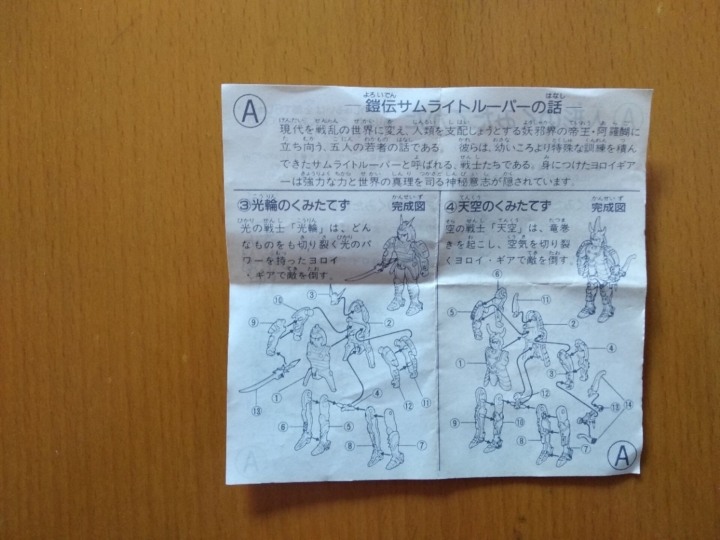 A
鎧伝サムライトルーパーの話
現代を戦乱の世界に変え、人類を支配しようとする妖邪界の帝王・阿羅醐に
立ち向う、五人の若者の話である。 彼らは、幼いころより特殊な訓練を積ん
できたサムライトルーパーと呼ばれる、戦士たちである。身につけたヨロイギア
ーは強力な力と世界の真理を司る神秘意志が隠されています。
③光輪のくみたてず 完成図
光の戦士「光輪」は、どん
なものをも切り裂く光のパ
ワーを持ったヨロイ
・ギアで敵を倒す。
③
⑩
⑨
②
④
⑬
①
⑫
⑪
⑥
⑤
⑧
⑦
④天空のくみたてず 完成図
空の戦士「天空」は、竜巻
きを起こし、空気を切り裂
くヨロイ・ギアで敵を倒す。
⑥
⑪
⑤
②
④
①
③
⑫
⑬
⑭
⑨
⑩
⑧
⑦
A